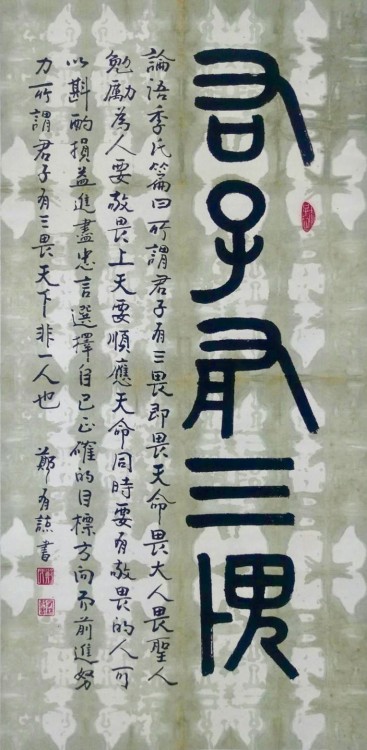 君子有三畏
論語季氏篇曰所謂君子有三畏即畏天命畏大人畏聖人
勉勵為人要敬畏上天要順應天命同時要有敬畏的人可
以斟酌損益進盡忠言選擇自己正確的目標方向而前進努
力所謂君子有三畏天下非一人也 鄭有書